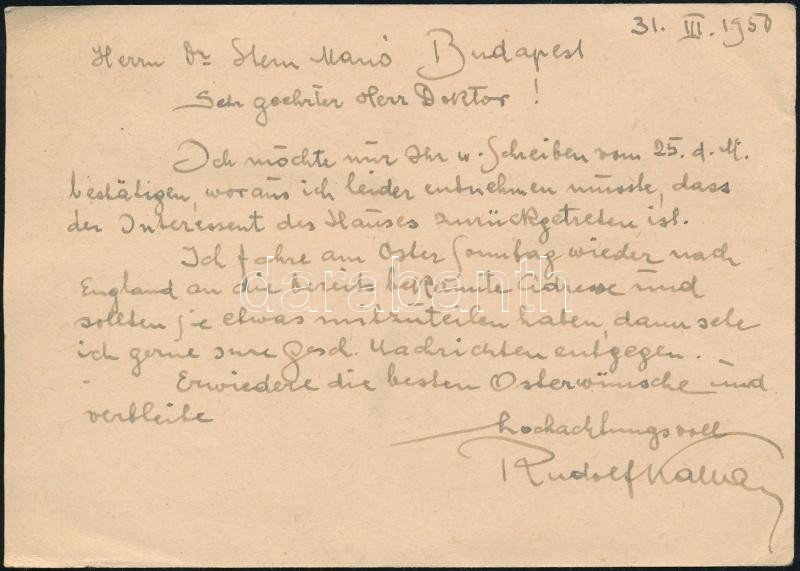 31. III. 1950
Herrn Dr Stern Manó Budapest
Sehr geehrter Herr Doktor!
Ich möchte nur Ihr w. Schreiben vom 25. d. M.
bestätigen, woraus ich leider entnehmen musste, dass
der Interessent des Hauses zurückgetreten ist.
Ich fahre am Oster Sonntag wieder nach
England an die bereits bekannte Adresse und
sollten Sie etwas mitzuteilen haben, dann sehe
ich gerne Ihre gesch. Nachrichten entgegen.
Erwiedere die besten Osterwünsche und
verbleibe
hochachtungsvoll
Rudolf
darabanth